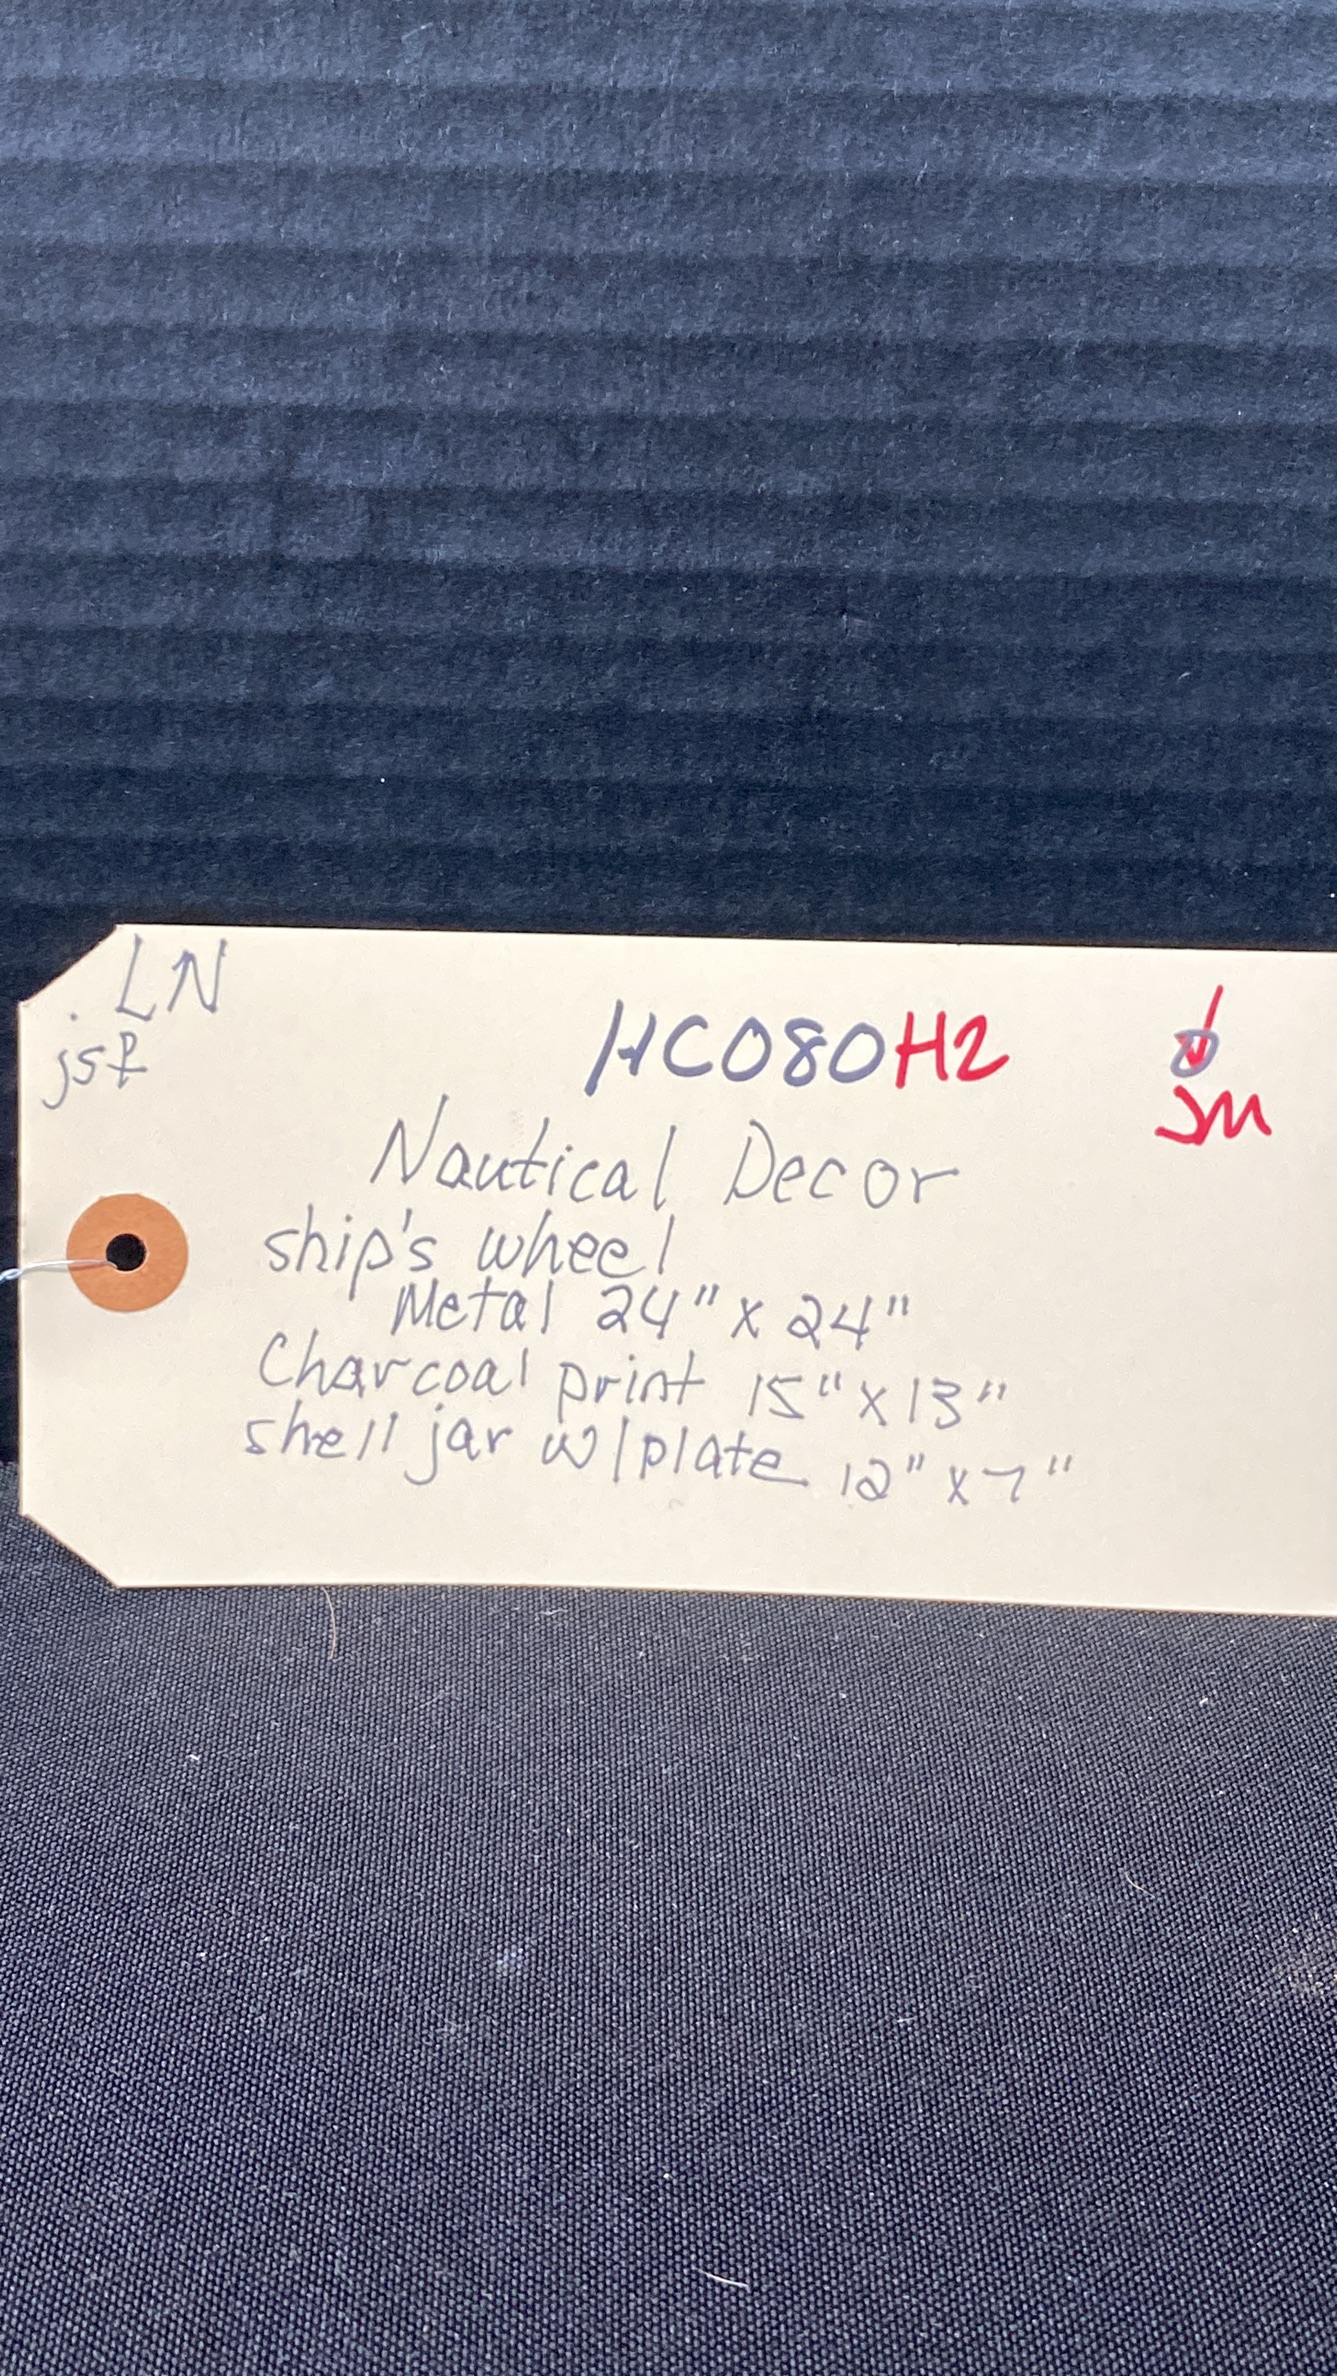 LN
jsf
HC080H2
JM
Nautical Decor
ship's wheel
Metal 24" x 24"
Charcoal print 15" x 13"
shell jar w/plate 12" x 7"